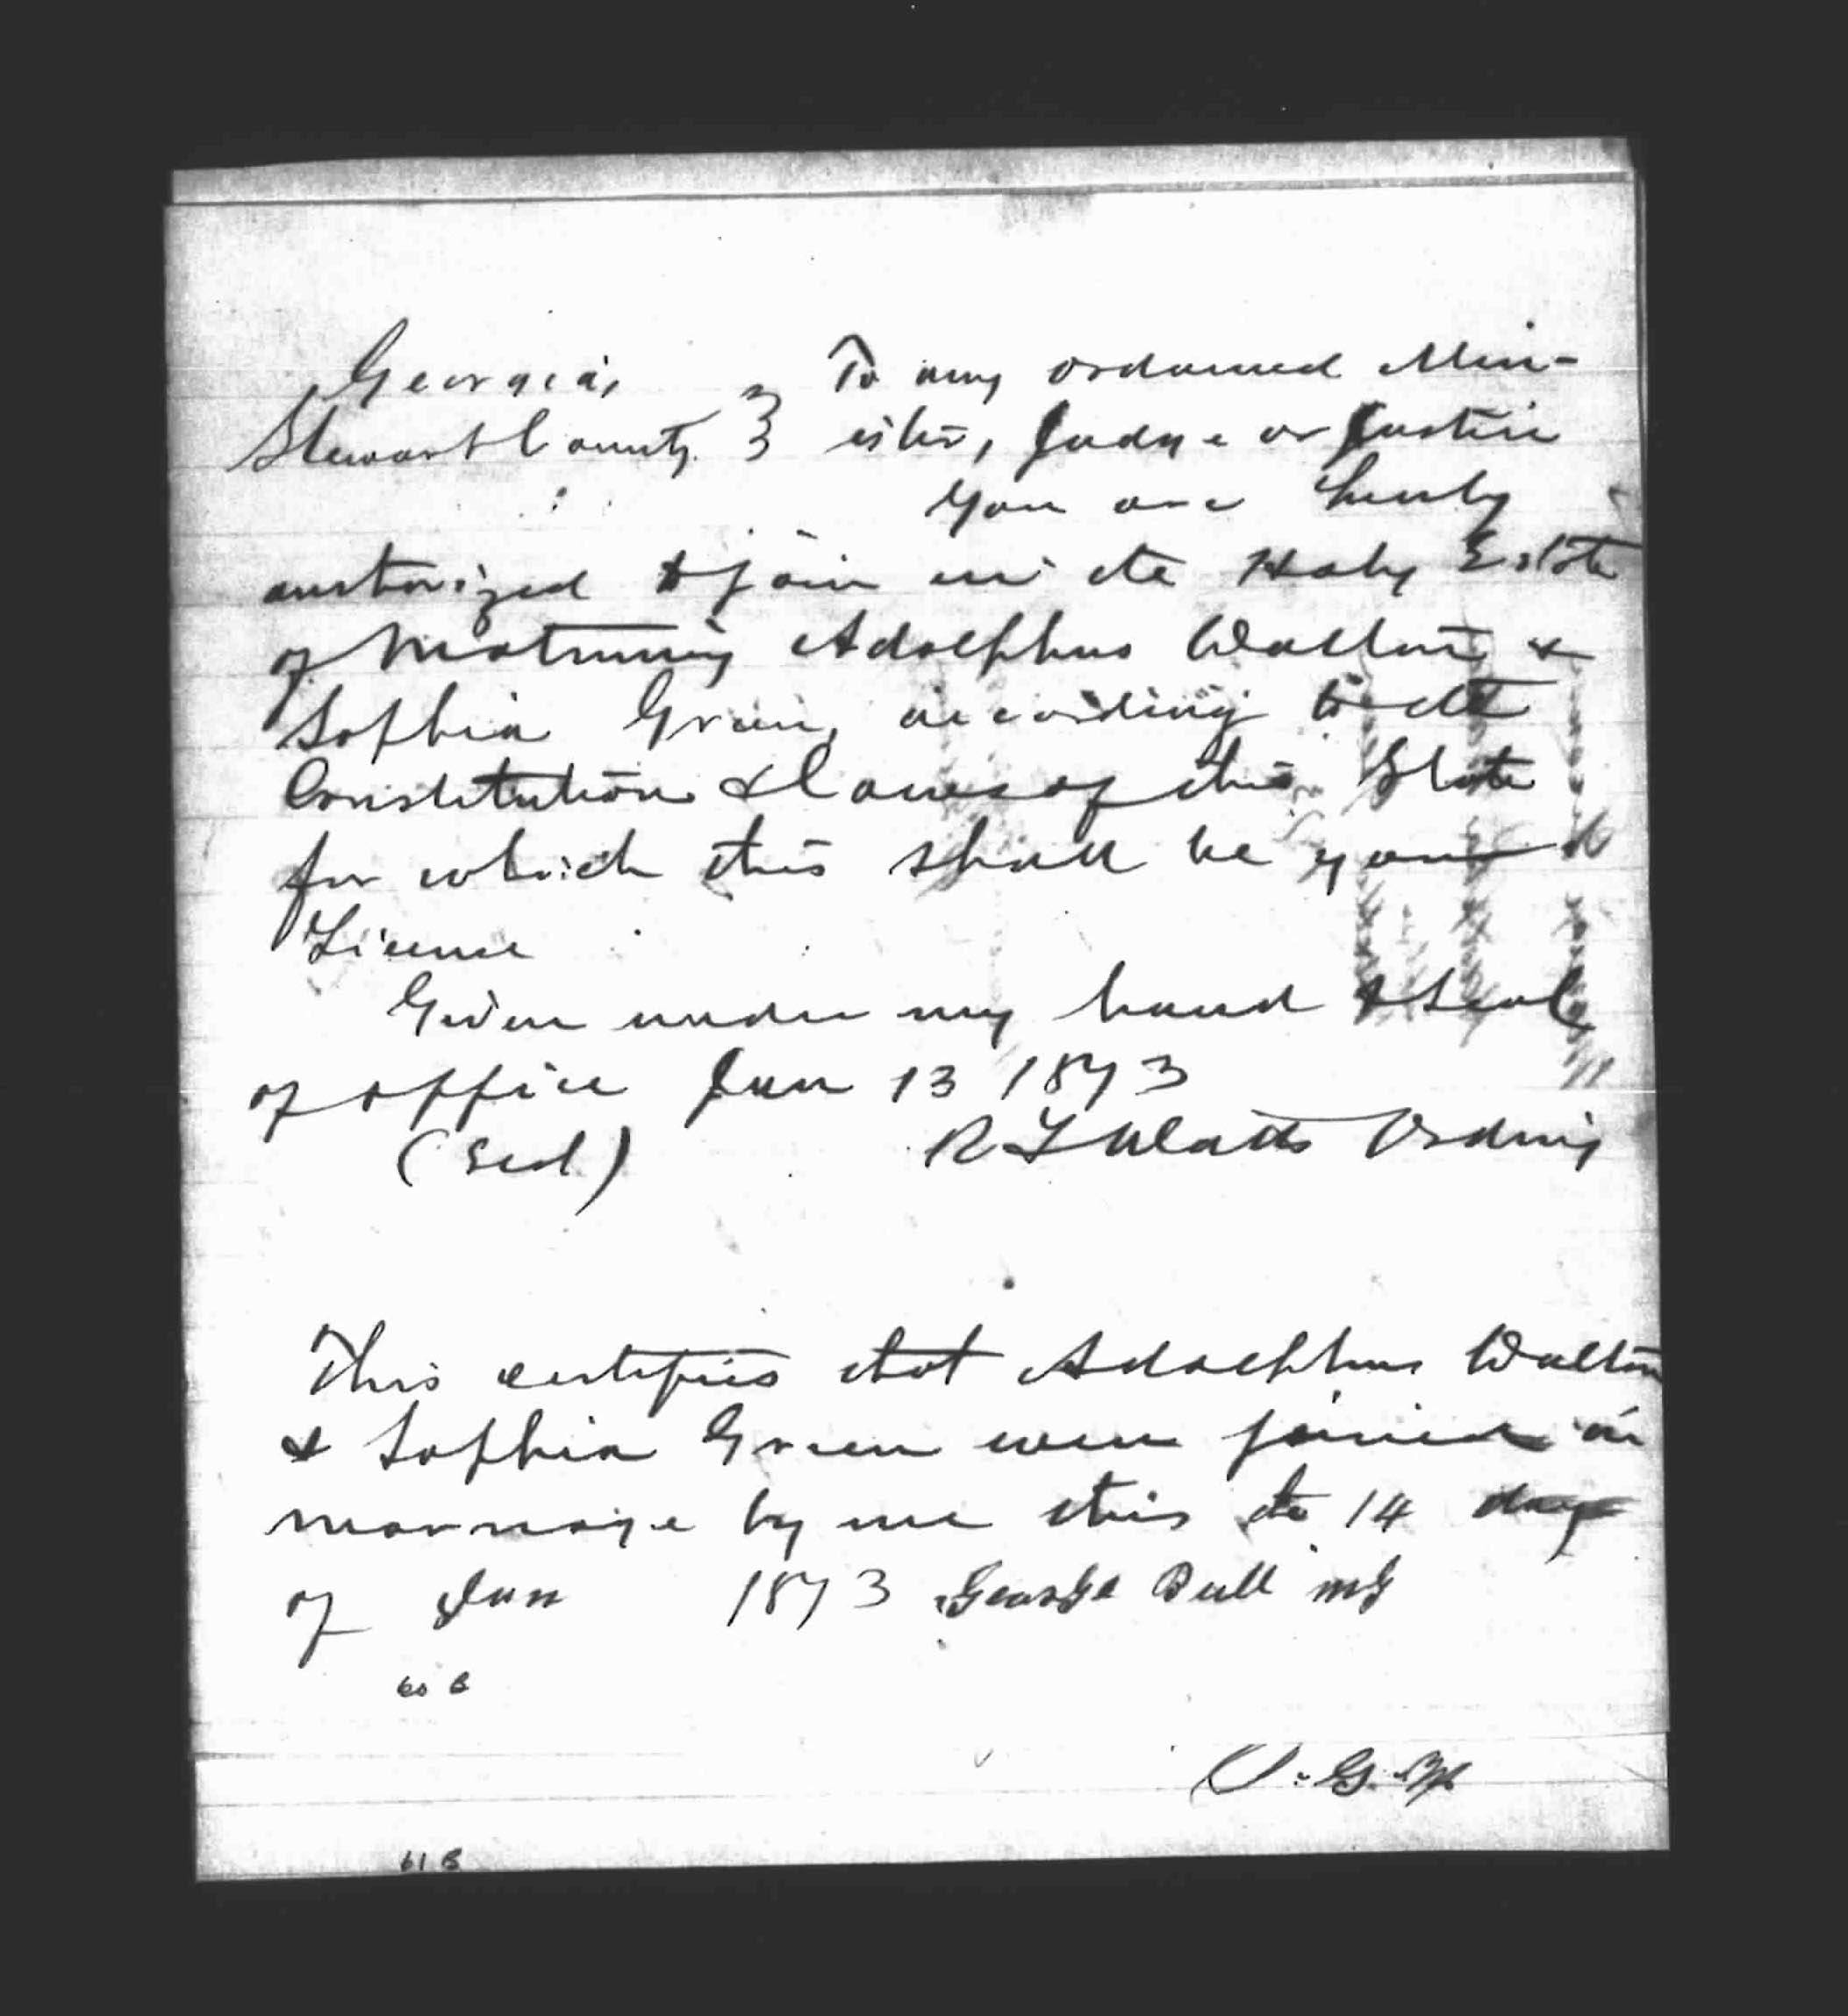 Georgia, } To any ordained Min-
Stewart County. } ister, Judge or Justice
You are hereby
authorized to join in the Holy Estate
of Matrimony Adolphus Walton &
Sophia Green, according to the
Constitution & Laws of this State
for which this shall be your
License
Given under my hand & Seal
of office Jan 13 1873
(Seal) R L Watts Ordinary
This certifies that Adolphus Walton
& Sophia Green were joined in
marriage by me this the 14 day
of Jan 1873 George Bull MG
60 B
61 B